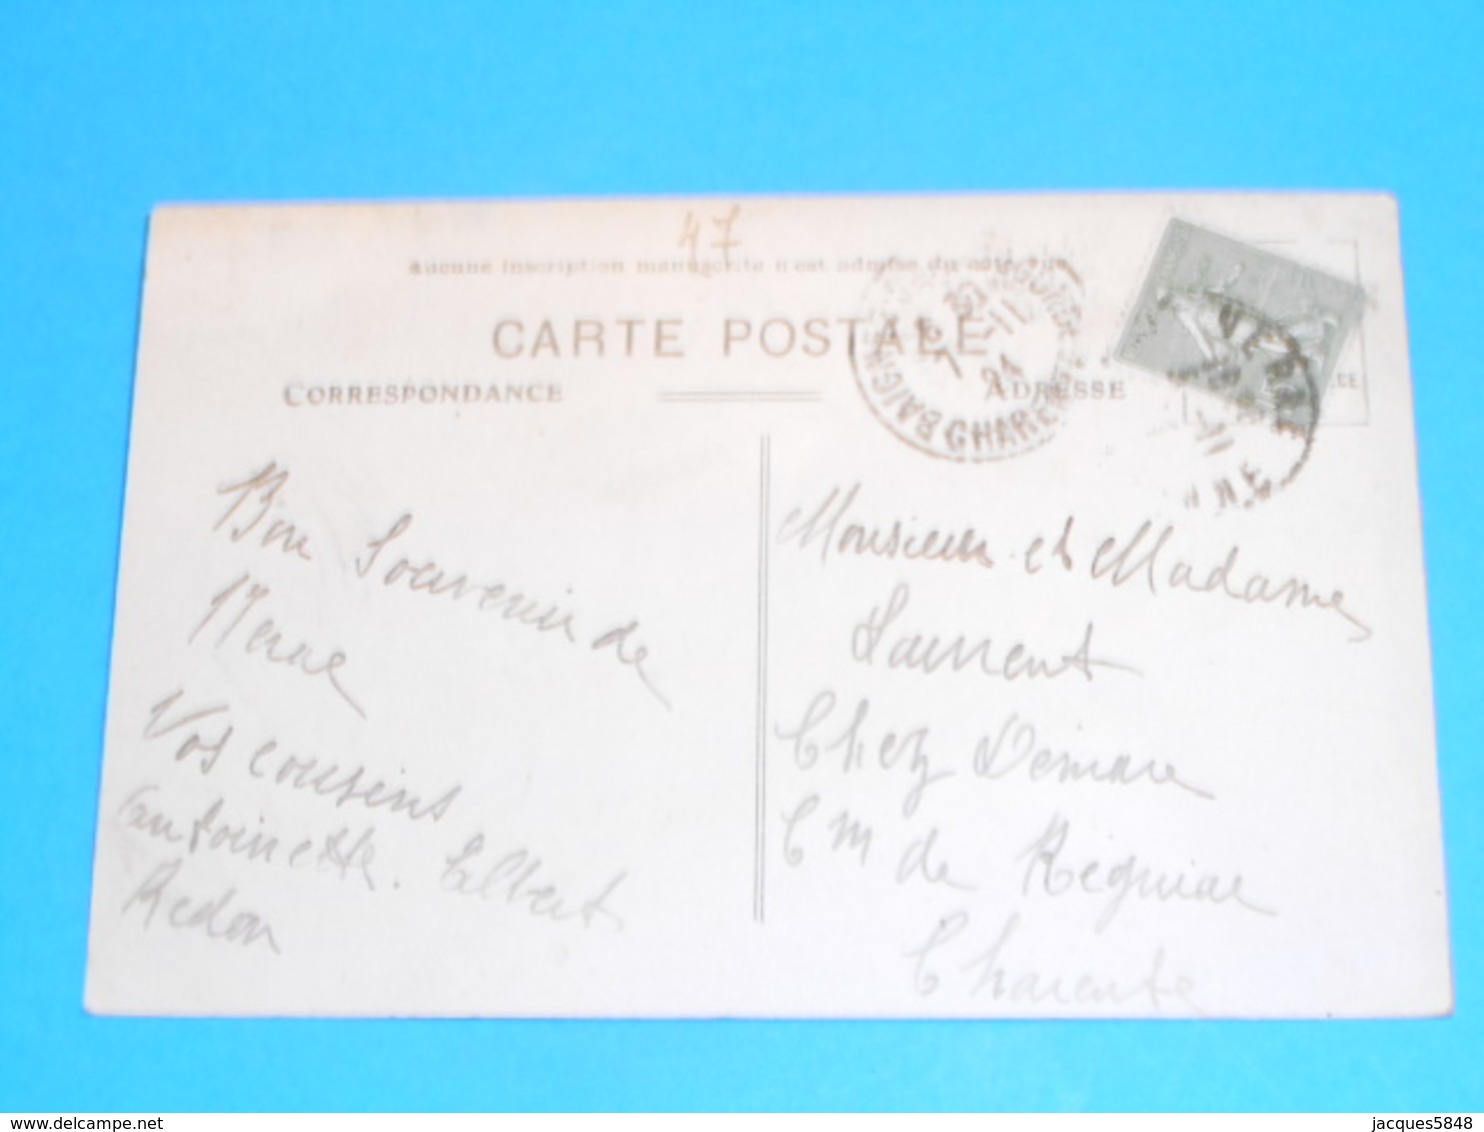 47
Aucune inscription manuscrite n'est admise du côté vue
CARTE POSTALE
CORRESPONDANCE
ADRESSE
BAIGNES
CHARENTE
7-11
24
VER
11
NNE
Bon Souvenir de
Vos cousins
Antoinette. Elbert
Redon
Monsieur et Madame
Laurent
Chez Demare
Cm de Réguiac
Charente
jacques5848